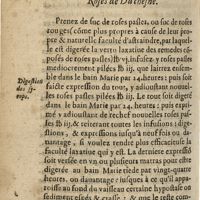 Roses de Duchesne.
PRenez de suc de roses pasles, ou suc de roses
rouges (côme plus propres à cause de leur pro-
pre & naturelle faculté d'astraindre, par laquel-
le est digerée la vertu laxatiue des remedes cô-
posés de roses pasles) ℔ vj. infusés y roses pasles
modérément pillées ℔ iij. que lairrez ensem-
Digestion
des sy-
rops.
ble dans le bain Marie par 24. heures; puis soit
faicte expression du tout, y adioustant nouuelles
roses pasles pilées ℔ iij. & le tout soit remis
dans le bain Marie par 24. heures; puis expri-
mé y adioustant de rechef nouuelles roses pasles
℔ iij. & reiterant toutes les infusions; digestions
s; & expressions iusqu'à neuf fois ou dauan-
tage, si voulez rendre plus efficacieuse la
faculté laxatiue qui y est. La dernière expression
soit versée en vn ou plusieurs matras pour estre
digerée au bain Marie tiède par vingt-quatre
heures, ou dauantage; iusques à ce qu'il appa-
roisse au fond du vaisseau certaine hypostase ou
sediment espés & crasse; & que le reste com-